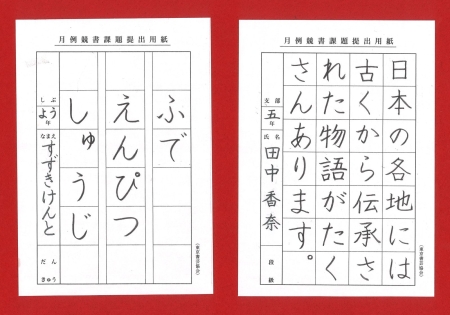 月例競書課題提出用紙
ふで
えんぴつ
しゅうじ
しぶ
よう年
なまえ
すずきけんと
だん
きゅう
(東京書芸協会)
月例競書課題提出用紙
日本の各地には
古くから伝承さ
れた物語がたく
さんあります。
支部
五年
氏名
田中香奈
段
級
(東京書芸協会)